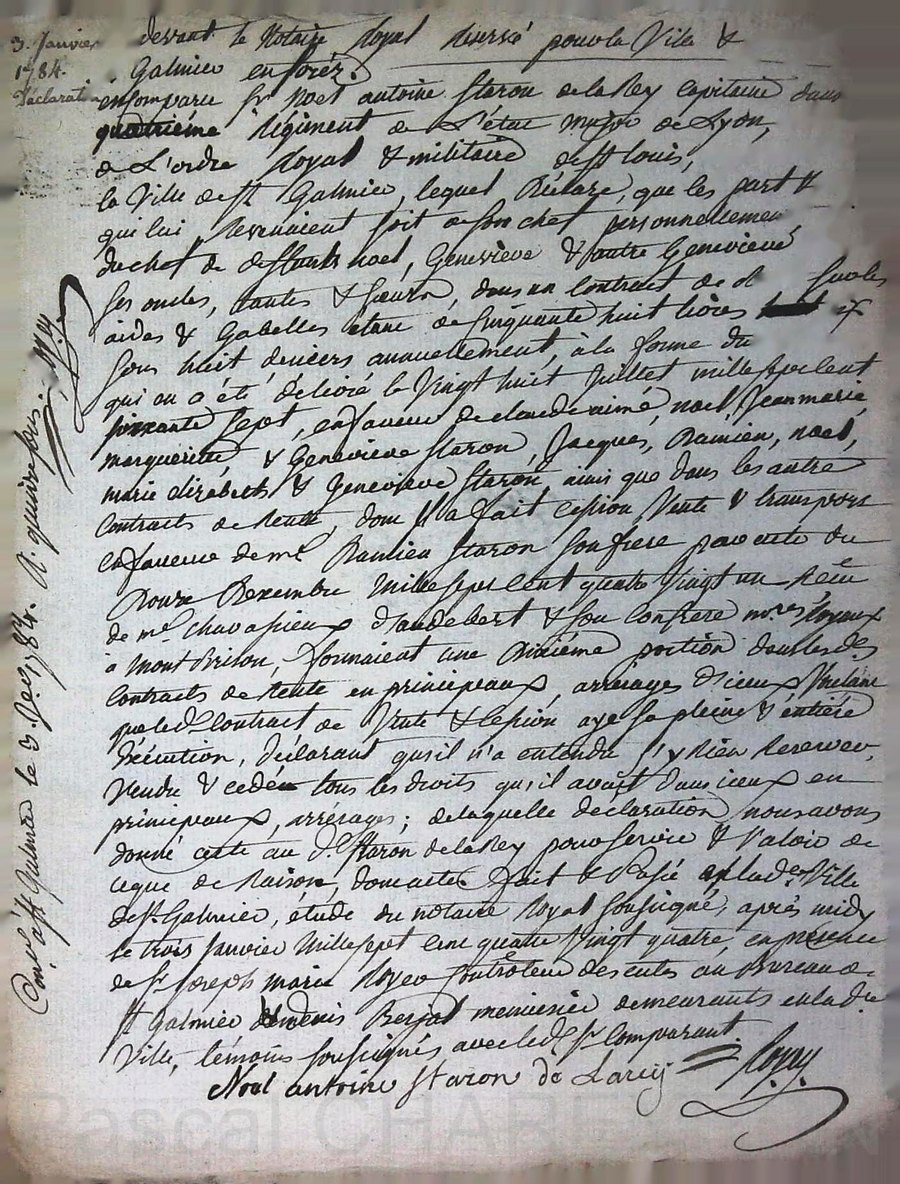 3. Janvier
1784.
Déclaration
devant le Notaire Royal Réservé pour la Ville &
Galmier en forez.
en comparu Sr Noel antoine Staron de la Rey Capitaine dans
quatriéme Régiment de L'état major de Lyon,
de L'ordre Royal & militaire de St Louis,
la Ville de St Galmier, lequel Déclare, que les part &
qui lui Revenaient soit de son chef personnellement
du chef de deffunts noel, Geneviève & autre Geneviève
ses oncles, tantes & sœurs, dans un Contract de sur les
aides & Gabelles étant de Cinquante huit livres
sous huit deniers annuellement, à la forme du
qui en a été délivré le Vingt huit Juillet mille sept cent
soixante sept, en faveur de claude aimé, noel Jean marie
marguerite & Geneviève Staron, Jacques, Damien, noel,
marie elizabeth & Geneviève Staron, ainsi que dans les autre
Contracts de Rente, dont Il a fait cession, Vente & transport
en faveur de mre Damien Staron son frere par acte du
Douze Décembre mille sept cent quatre vingt un Réçu
de me Chavassieux d'audebert & son Confrère nores Royaux
à Montbrison, formaient une Dixiéme portion dans lesds
Contracts de Rente en principeaux, arrérages d'iceux Voulant
que led. Contract de Vente & Cession aye sa pleine & entiére
Exécution, déclarant qu'il n'a entendu s'y Rien Reserver,
Vendu & cedée tous les droits qu'il avait dans iceux en
principeaux, arrérages; de laquelle déclaration nous avons
donné acte au d. Staron de la Rey pour service & Valoir de
ceque de Raison, dont acte. fait & Passé en lade Ville
de St Galmier, étude du notaire Royal soussigné, après midy
le trois Janvier mille sept cent quatre vingt quatre, en présence
de Sr Joseph marie Royer Contrôleur des actes au Bureau de
St Galmier & denis Berjat menuisier demeurants en lade
Ville, témoins soussignés avec led. Sr Comparant.
Noël antoine Staron de Larey
Royer
Con.lé à St Galmier le 3. Jer 1784. R. quinze sous.